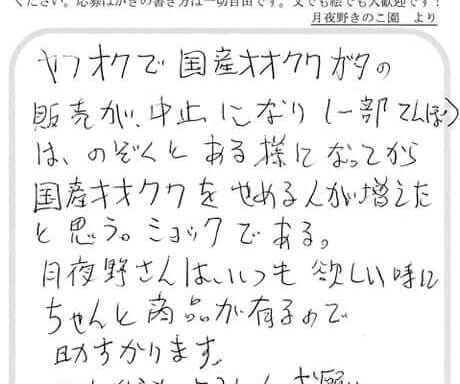 ください。応募はがきの書き方は一切自由です。文でも絵でも大歓迎です！
月夜野きのこ園　より
ヤフオクで国産オオクワガタの
販売が、中止になり(一部てんぽ)
は、のぞくとある様になってから
国産オオクワをやめる人が増えた
と思う。ショックである。
月夜野さんは、いつも欲しい時に
ちゃんと商品が有るので
助すかります。